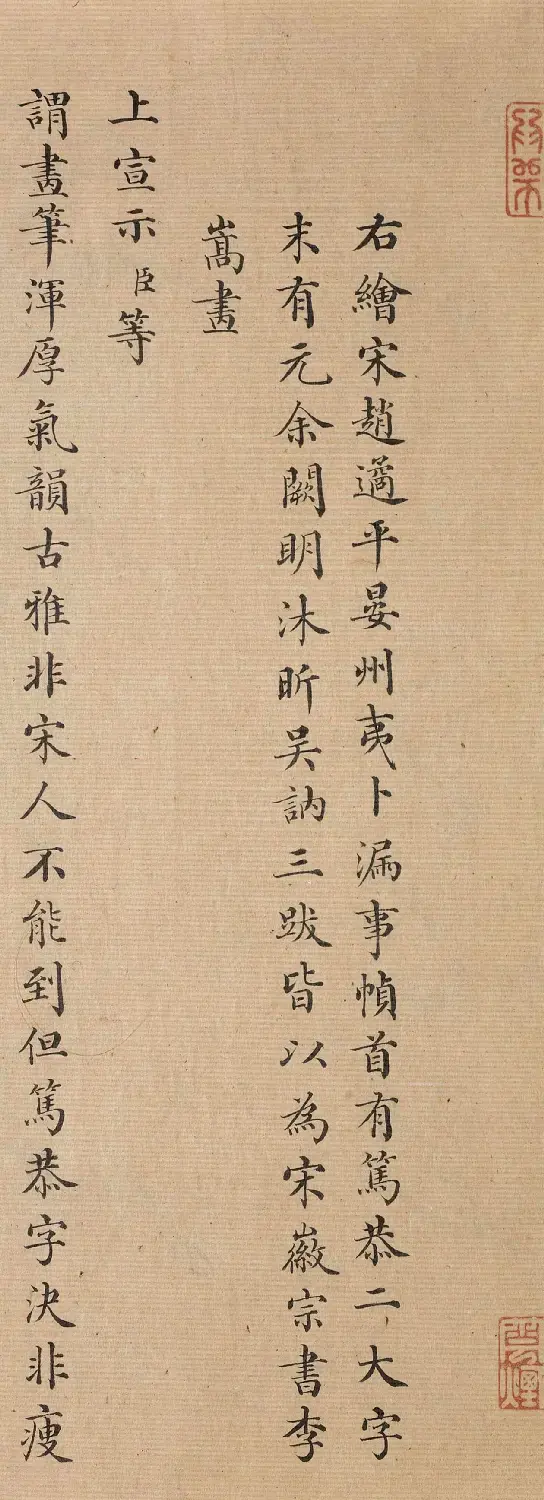 右繪宋趙遹平晏州夷卜漏事幀首有篤恭二大字
末有元余闕明沐昕吴訥三跋皆以為宋徽宗書李
嵩畫
上宣示臣等
謂畫筆渾厚氣韻古雅非宋人不能到但篤恭字決非瘦